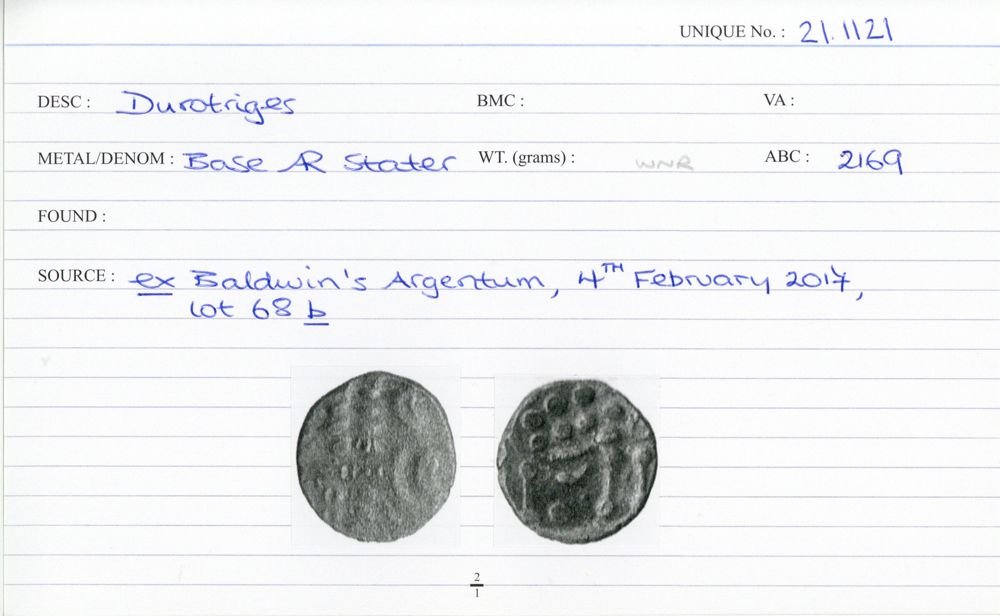 UNIQUE No. : 21.1121
DESC : Durotriges BMC : VA :
METAL/DENOM : Base AR Stater WT. (grams) : WNR ABC : 2169
FOUND :
SOURCE : ex Baldwin's Argentum, 4TH February 2017,
Lot 68 b
2
1